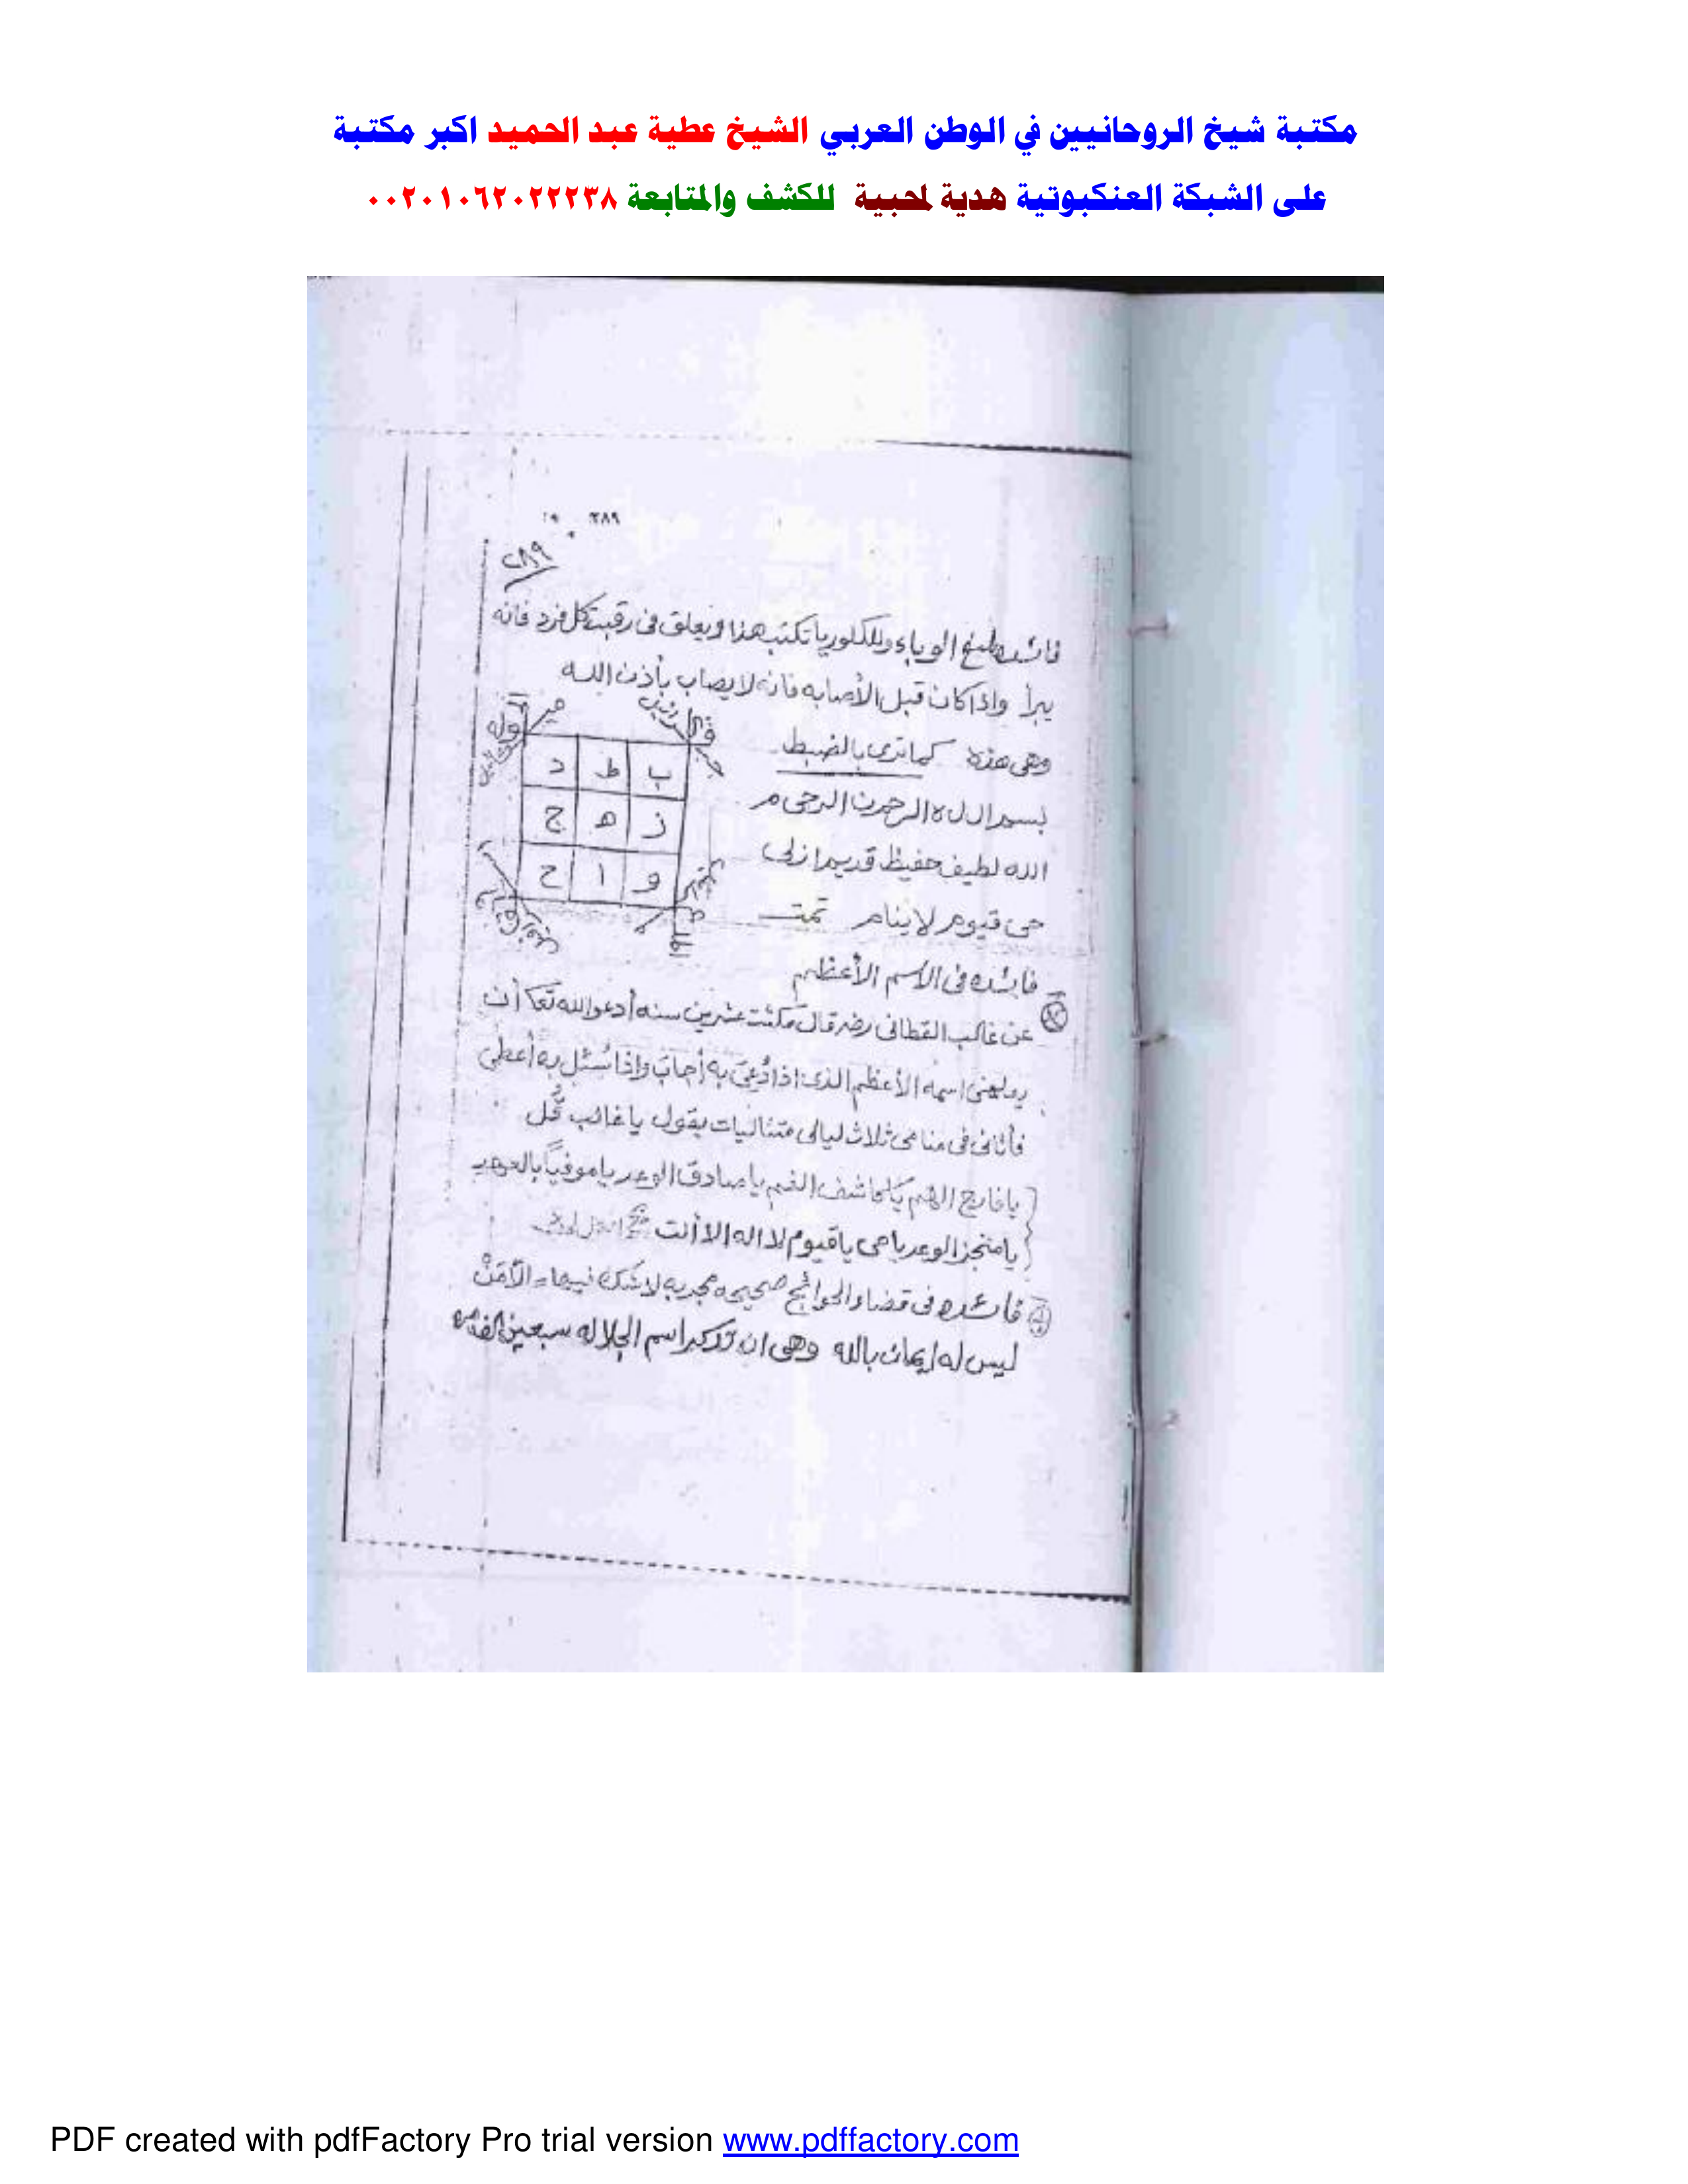 مكتبة شيخ الروحانيين في الوطن العربي الشيخ عطية عبد الحميد اكبر مكتبة
على الشبكة العنكبوتية هدية لمحبية للكشف والمتابعة ٠٠٢٠١٠٦٢٠٢٢٢٣٨
٢٨٩
٢٨٩
فائده لمنع الوباء وللكلوريا تكتب هذا ويعلق في رقبة كل فرد فانه
يبرأ واذا كان قبل الأصابه فانه لا يصاب بأذن الله
وهى هذه كما ترى بالضبط
ب ط د
ز ه ج
و ا ح
بسم ال ل ه الرحمن الرحى م
الله لطيف حفيظ قديم ازلى
حى قيوم لا ينام تمت
فائده فى الاسم الأعظم
عن غالب القطانى رضه قال مكثت عشرين سنه أدعوا الله تعا أن
يعلمنى اسمه الأعظم الذى اذا دُعِىَ به أجاب واذا سُئل به أعطى
فأتانى فى منامى ثلاث ليالى متتاليات يقول يا غالب قُل
يا فارج الهم يا كاشف الغم يا صادق الوعد يا موفياً بالعهد
يا منجز الوعد يا حى يا قيوم لا اله الا أنت
فائده فى قضاء الحوائج صحيحه مجربه لا شك فيها
ليس له إيمان بالله وهى ان تذكر اسم الجلاله سبعين الف
PDF created with pdfFactory Pro trial version www.pdffactory.com